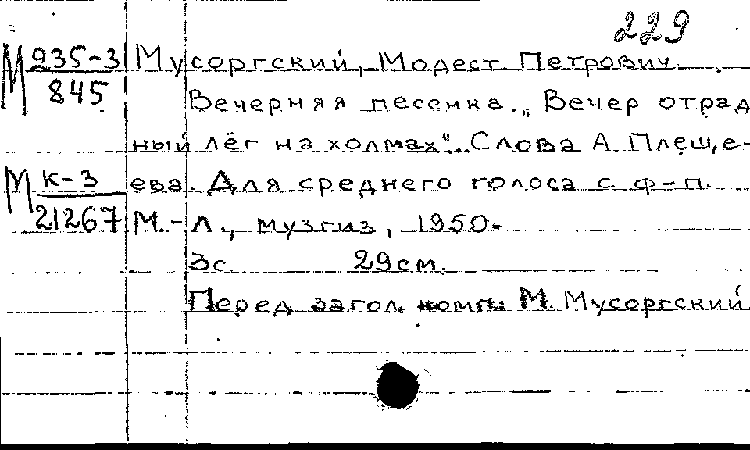 229
М 935-3 Мусоргский, Модест Петрович.
845 Вечерняя песенка. „Вечер отрад
ный лёг на холмах". Слова А. Плеще-
М К-3 ева. Для среднего голоса с ф-п.
21267 М.-Л., Музгиз, 1950.
3с 29см.
Перед загол. комп. М. Мусоргский